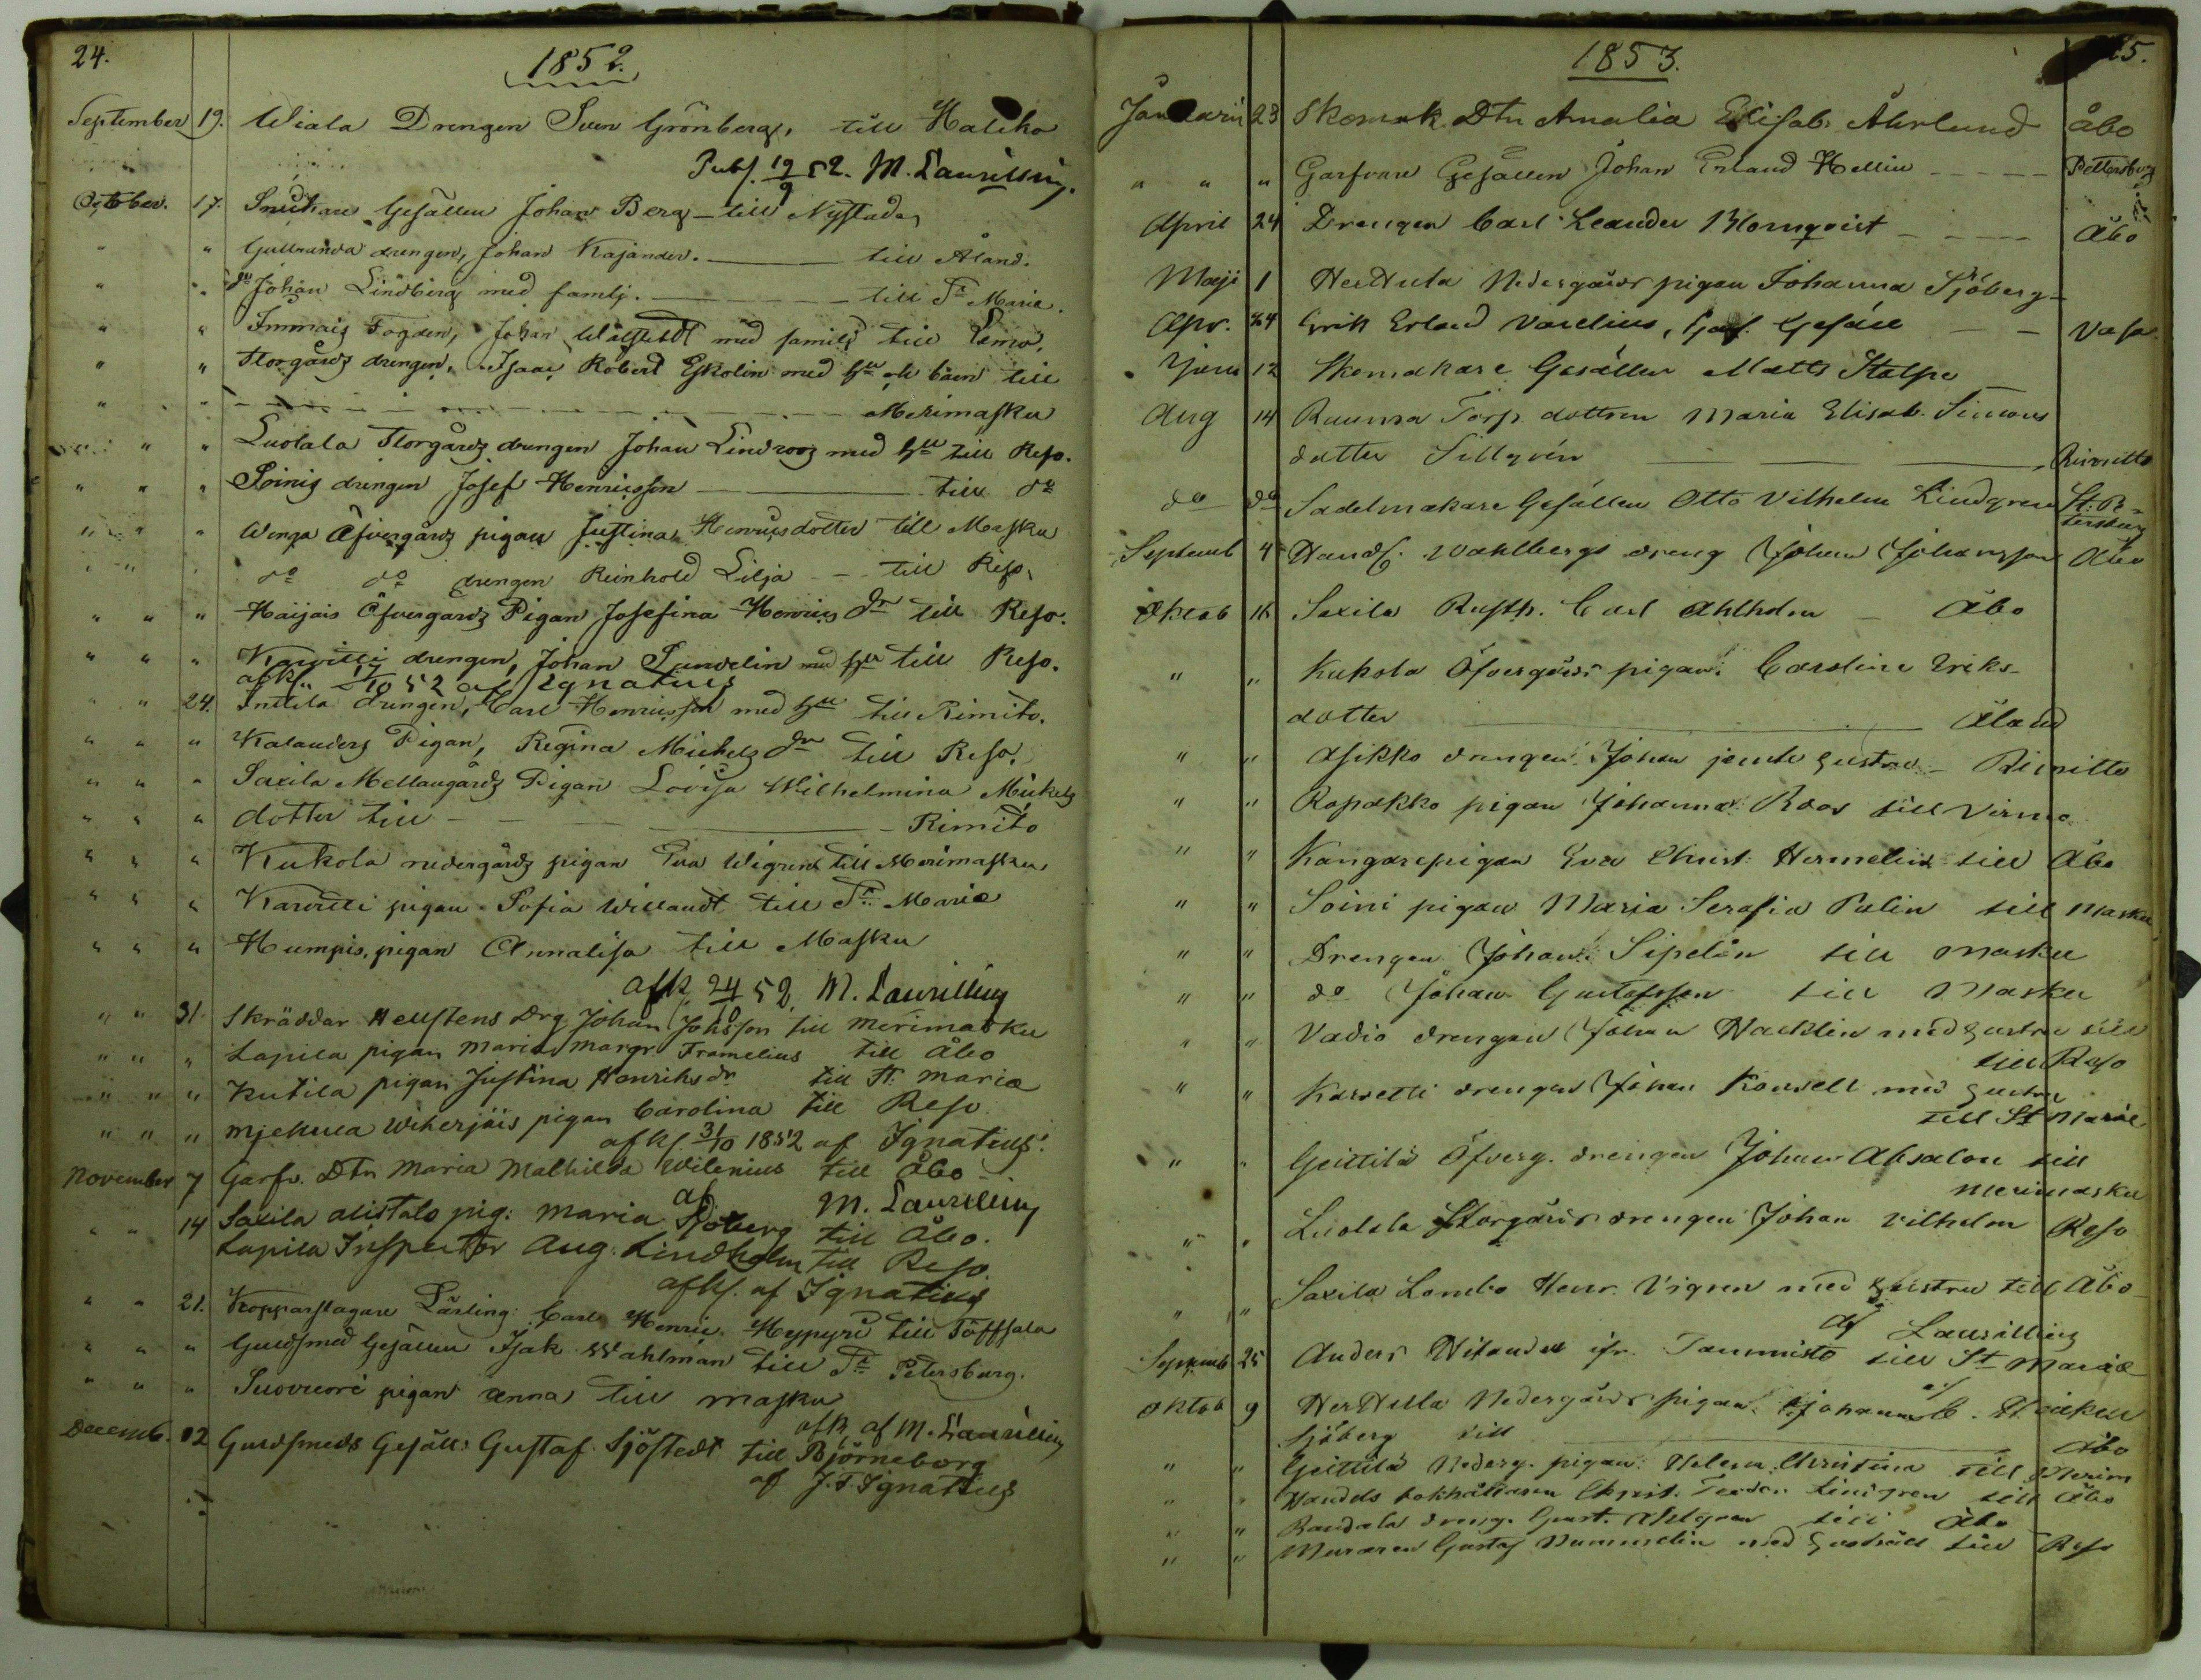 24.
1852.
September 19. Wiala Drengen Sven Grönberg, till Haliko
Publ. 19/9 52. M. Laurellius.
October. 17. Snickare Gesällen Johan Berg – till Nystad,
" " Gullranda drengen, Johan Kajander. — till Åland.
" " do Johan Lindberg med familj. — till St Marie.
" " Immais Fogden, Johan med familj till Lemo.
" " Storgårds drengen, Isaac Robert Eskolin med hu o barn till
" " Merimasku
" " " Luolala Storgårds drengen Johan Lindroos med hu till Reso.
" " " Soinis drengen Josef Henricsson — till do
" " " Wensa Öfvergårds pigan Justina Henricsdotter till Masku
" " do do drengen Reinhold Lilja – till Reso,
" " " Haijais Öfvergårds Pigan Josefina Henrics dr till Reso.
" " " Karvetti drengen, Johan Sundelin med hu till Reso.
afk. 17/10 52 af Ignatius
" " 24. Inttila drengen, Carl Henricsson med hu till Rimito.
" " " Kalanders Pigan, Regina Michels dr till Reso.
" " " Saxila Mellangårds Pigan Lovisa Wilhelmina Mickels
" " " dotter till — Rimito
" " " Kukola nedergårds pigan Eva Wigren till Merimasku
" " " Karvetti pigan Sofia Willandt till St Marie
" " " Humpis, pigan Annalisa till Masku
afk. 24/10 52. M. Laurellius
" " 31. Skräddar Hellstens Drg. Johan Johsson till Merimasku
" " " Lapila pigan Maria Margr. Framelius till Åbo
" " " Kutila pigan Justina Henriks dr till St. Mariæ
" " " pigan Carolina till Reso
afk. 31/10 1852 af Ignatius.
November 7 Garfv. Dtn Maria Mathilda Wilenius till Åbo
af M. Laurellius
" " 14 Saxila alistalo pig: Maria Sjöberg till Åbo.
Lapila Inspector Aug. Lindholm till Reso
afk. af Ignatius
" " 21. Kopparslagare Lärling: Carl Henric Heypyri till Töffsala
" " " Guldsmed Gesällen Isak Wahlman till St Petersburg.
" " " Suovuori pigan Anna till Masku
afk. af M. Laurellius
Decemb. 12 Guldsmeds Gesäll: Gustaf Sjöstedt till Björneborg
af J. F. Ignatius
1853.
25.
Januari 23 Skomak. Dtn Amalia Elisab. Åhrlund Åbo
" " " Garfvare Gesällen Johan Erland Hellin – – – Pettersburg
April 24 Drengen Carl Leander Blomqvist – – – Åbo
Maji 1 Herttula Nedergårds pigan Johanna Sjöberg –
Apr. 24 Erik Erland Varelius, Garf. Gesäll — — Vasa
Juni 12 Skomakare Gesällen Matts Stolpe
Aug 14 Rauma Torp. dottren Maria Elisab. Simons
dotter Sillqvén — — — Rimitto
do do Sadelmakare Gesällen Otto Vilhelm Lindgren St. Petersburg
Septemb 4 Handl. Wahlbergs dreng Johan Johansson Åbo
Oktob 16 Saxila Rusth. Carl Ahlholm – Åbo
" " Kukola Öfvergårds pigan: Carolina Eriks-
dotter — Åland
" " Asikko drengen Johan jemte hustru – Rimitto
" " Ropakko pigan Johanna Roos till Virmo
" " Kangaspigan Eva Christ. Hermelin till Åbo
" " Soini pigan Maria Serafia Palin till Masku
" " Drengen Johan Sipelin till Masku
" " do Johan Gustafsson till Masku
" " Vadio drengen Johan Hacklin med hustru till
till Reso
" " Karvetti drengen Johan Konsell med hustru
till St Mariæ
" " Geittilä Öfverg. drengen Johan Absalon till
Merimasku
" " Luolala Storgårds drengen Johan Vilhelm Reso
" " Saxila Lambo Henr. Vigren med hustru till Åbo
af Laurellius
Septemb 25 Anders ifr. Tammisto till St Mariæ
Oktob 9 Herttula Nedergårds pigan Johanna
Sjöberg till — Åbo
" " Geittilä Nederg. pigan: Helena Christina till Merim
" " Handels bokhållaren Christ. Teodor Lindgren till Åbo
" " Randala dreng. Gust. Ahlgren till Åbo
" " Muraren Gustaf Nummelin med hushåll till Reso